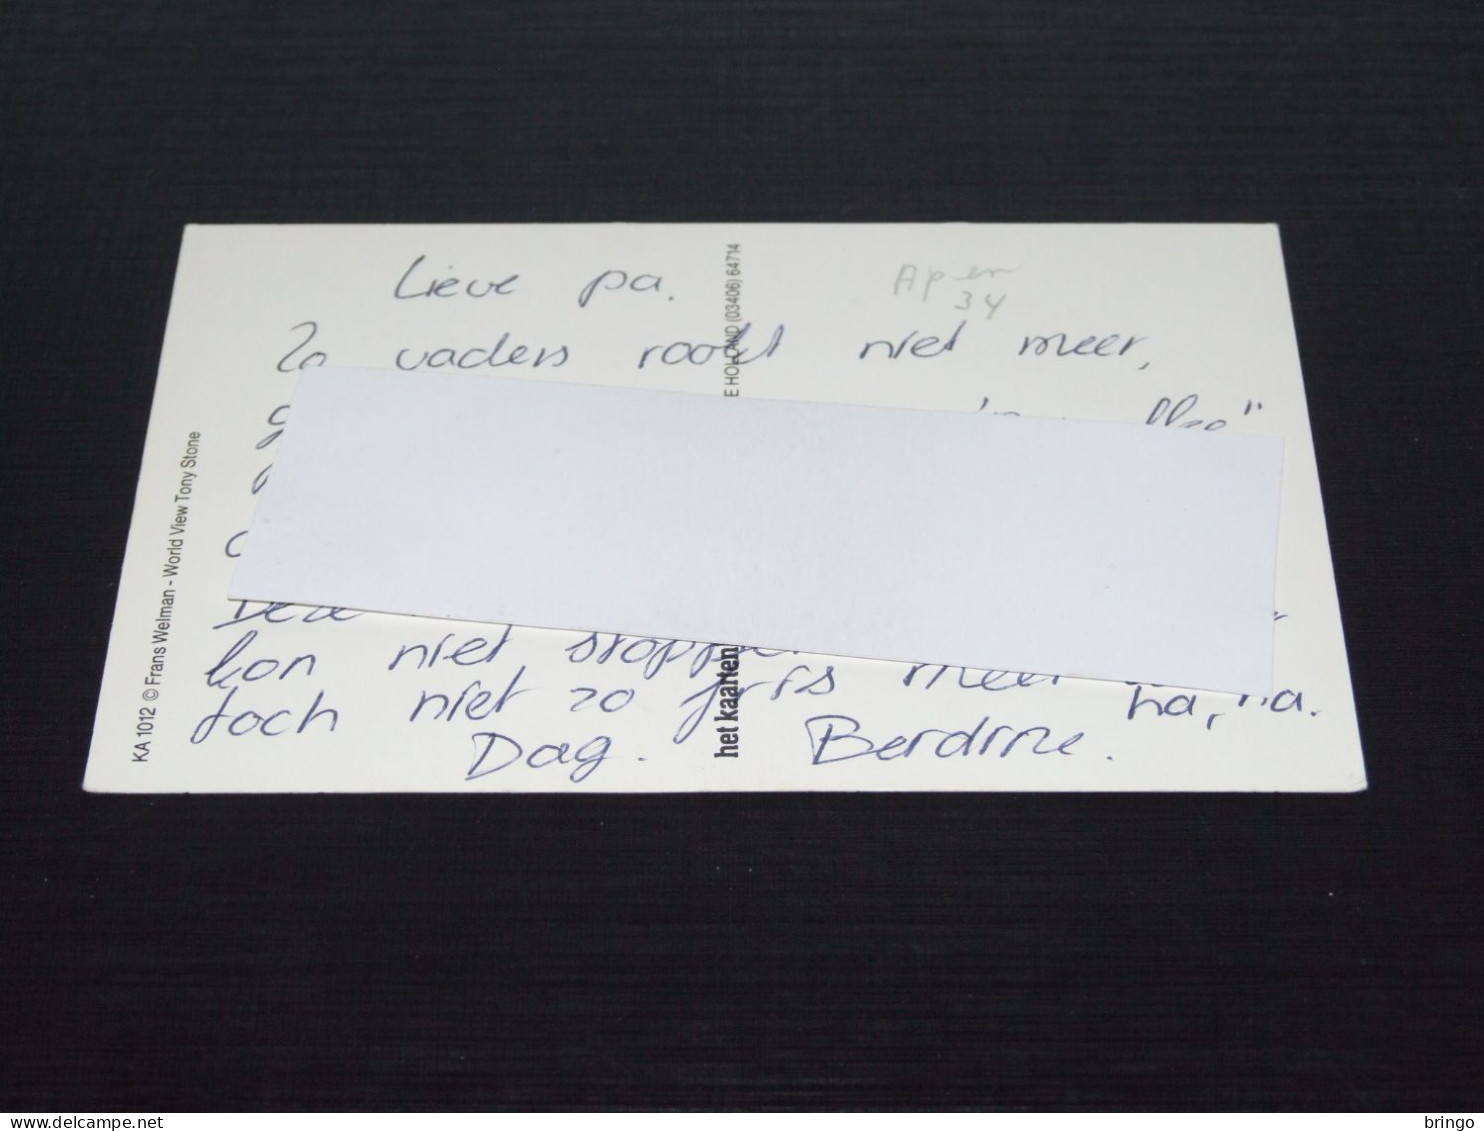 Lieve pa.
Apen
34
Zo vaders rookt niet meer,
Deze
kon niet stoppen
toch niet zo fris meer
ha, ha.
Dag. Berdine.
KA 1012 © Frans Welman - World View Tony Stone
het kaarten
E HOLLAND (03406) 64714
delcampe.net
bringo